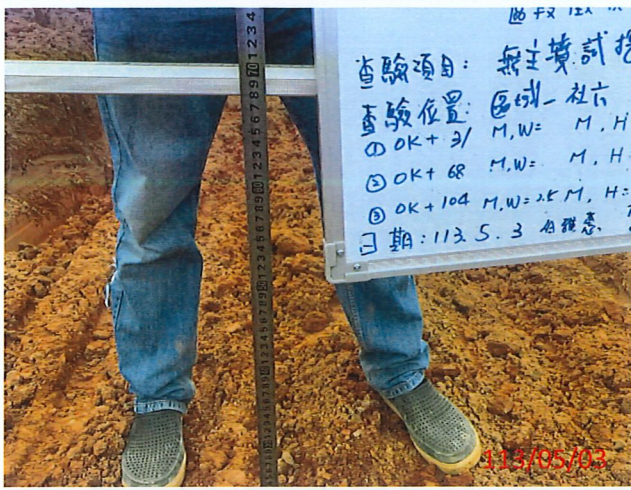 區段徵收
查驗項目: 無主墳試挖
查驗位置: 區域一 社六
① OK + 31 M, W= M, H
② OK + 68 M, W= M, H
③ OK + 104 M, W= 2.5 M, H=
日期: 113. 5. 3
113/05/03